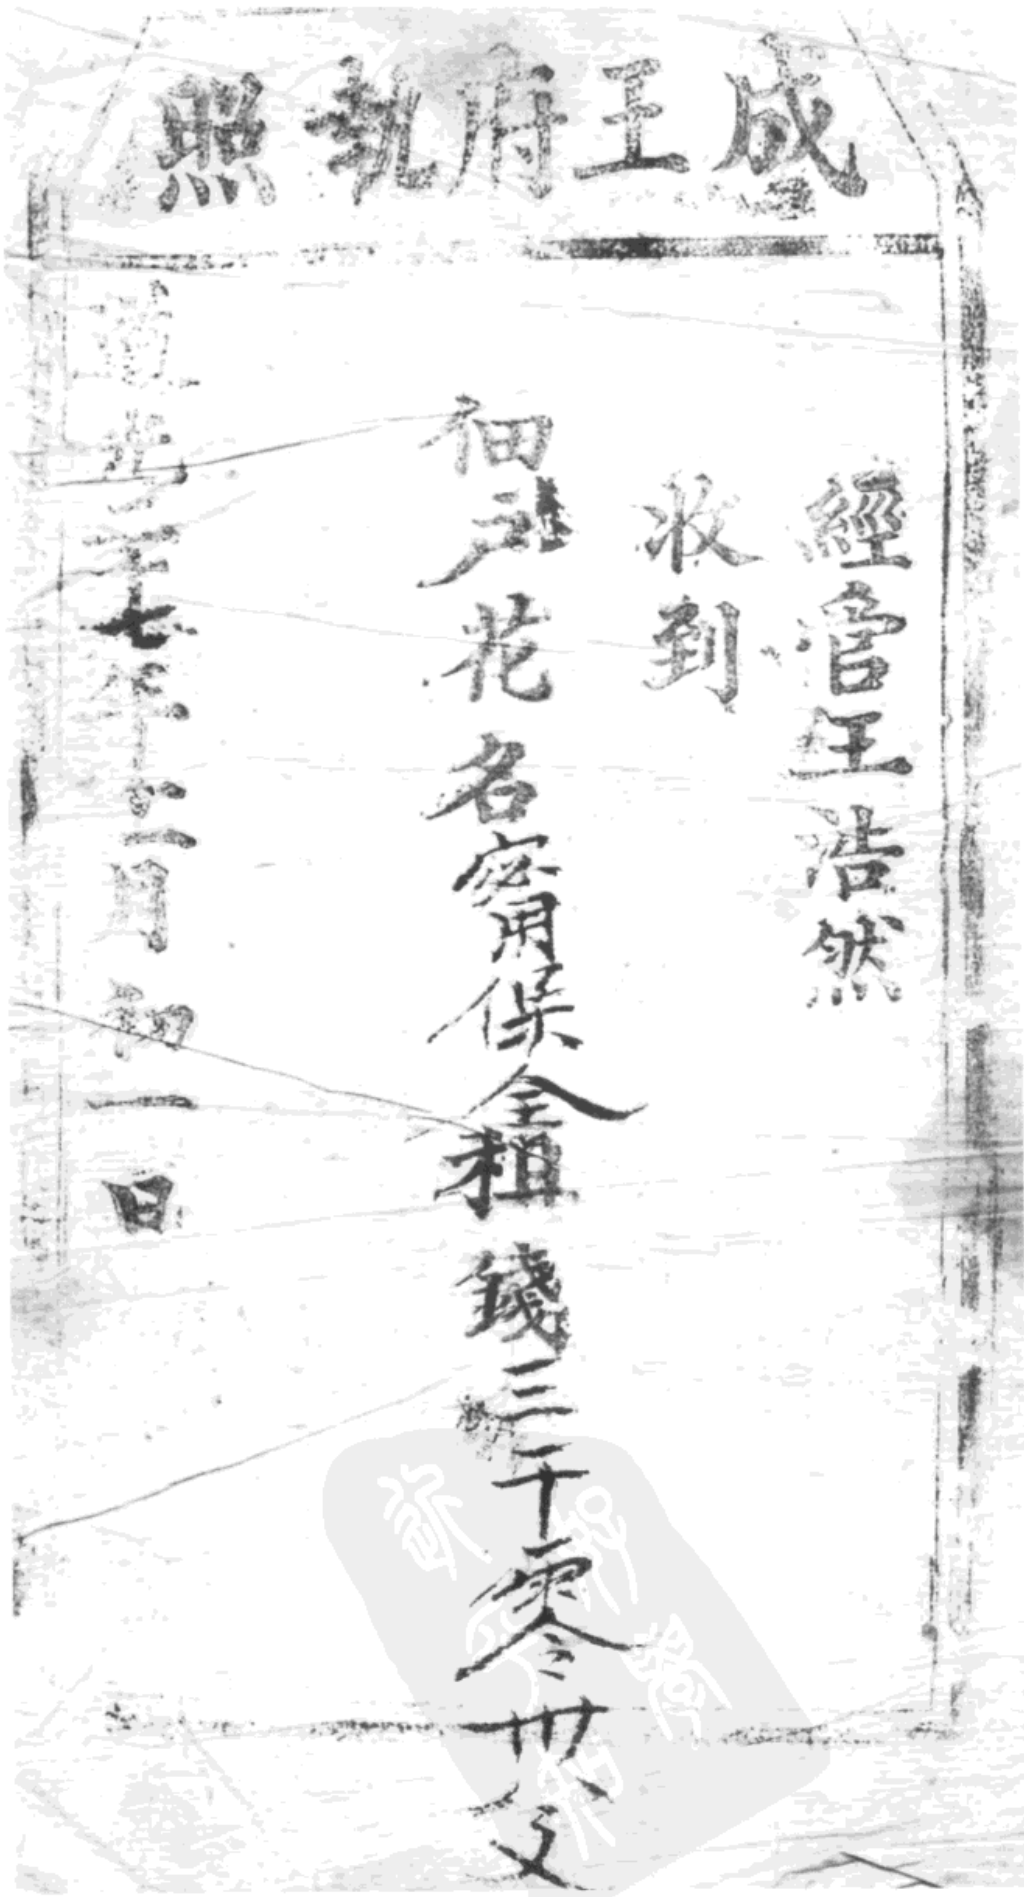 成王府執照
經管王浩然
收到
佃戶花名甯保全租錢三千零卅八文
道光二十七年十二月初一日